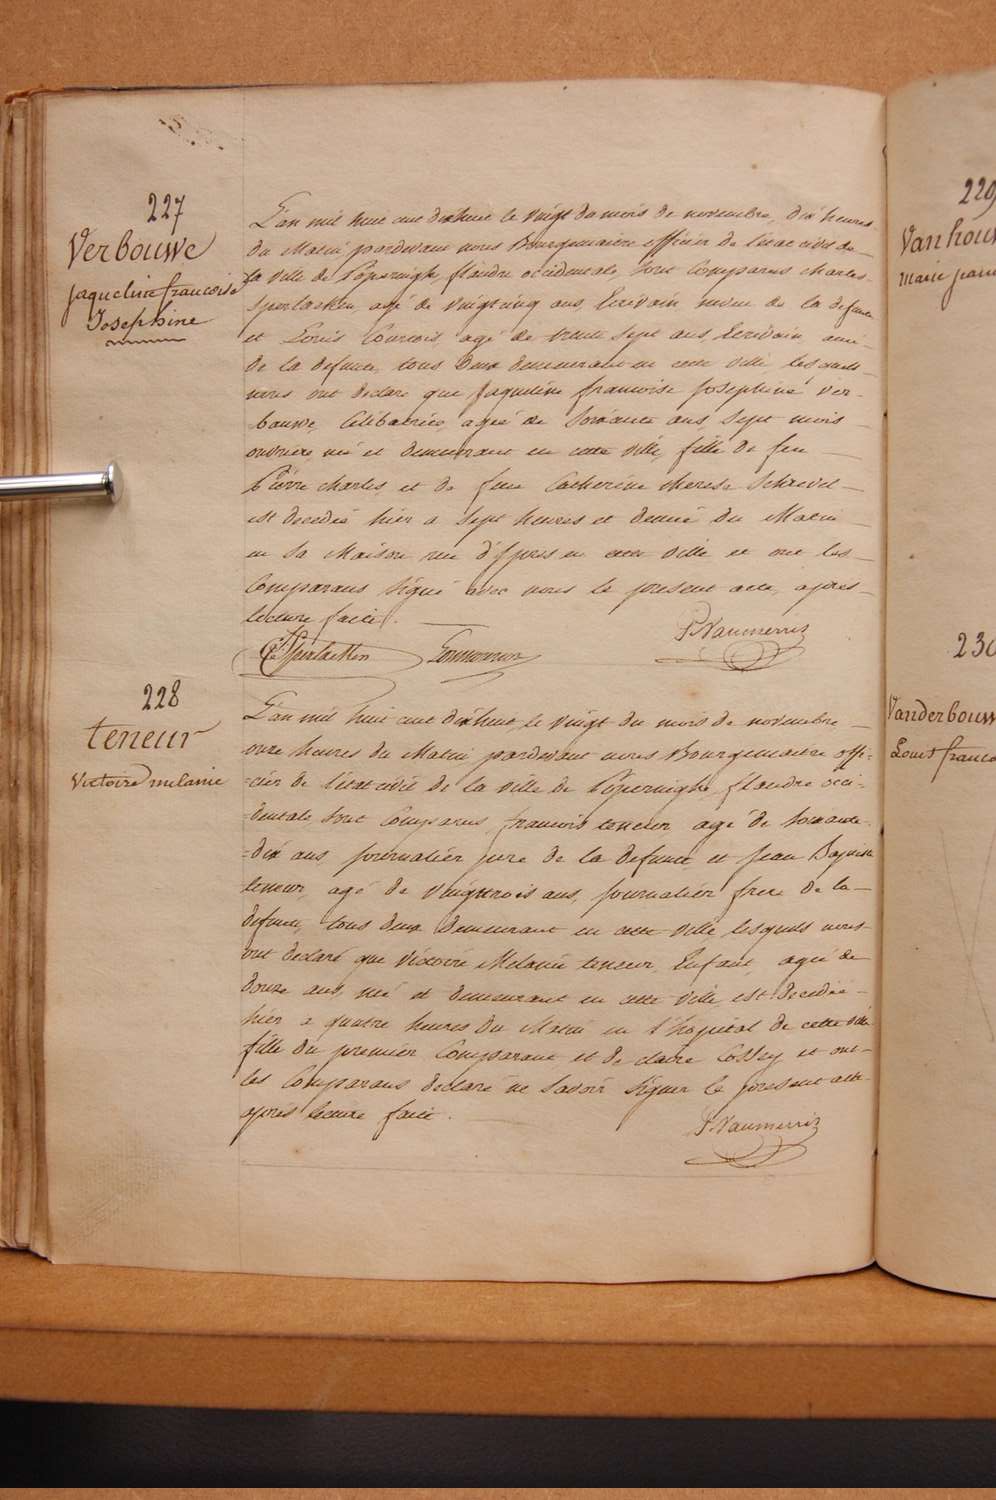 227
Verbouwe
jaqueline francoise
Josephine
L'an mil huit cent dixhuit le vingt du mois de novembre, dix heures
du Matin pardevant nous Bourguemaitre officier de l'état civil de
la ville de Poperinghe, flandre occidentale, sont Comparus charles
Sperlacken, agé de vingtcinq ans, Ecrivain, neveu de la defunte
et Louis Courtois, agé de trente sept ans, Ecrivain, ami
de la defunte, tous deux demeurant en cette ville, lesquels
nous ont declaré que Jaqueline francoise Josephine Ver-
bauwe, Célibatrice, agée de Soixante ans, sept mois
ouvrière, né et demeurant en cette ville, fille de feu
Pierre charles et de feue Catherine therese Schrevel
est decedée hier a sept heures et demie du Matin
en sa Maison rue d'Ypres en cette ville et ont les
Comparans signé avec nous le present acte, apres
lecture faite.
PVanmerris
228
teneur
Victoire melanie
L'an mil huit cent dixhuit, le vingt du mois de novembre,
onze heures du Matin pardevant nous Bourgemaitre offi-
=cier de l'état civil de la ville de Poperinghe, flandre occi-
=dentale sont Comparus, francois teneur, agé de soixante
=dix ans, journalier pere de la defunte, et Jean Baptiste
teneur, agé de vingttrois ans, journalier frere de la
defunte, tous deux demeurant en cette ville lesquels nous
ont declaré que Victoire Melanie teneur, Enfant, agée de
douze ans, né et demeurant en cette ville est decedée
hier a quatre heures du Matin en l'hopital de cette ville
fille du premier Comparant, et de claire Cossey et ont
les Comparans declaré ne savoir signer le present acte
après lecture faite.
PVanmerris
229
Vanhouw
marie
230
Vanderbouw
Louis franco